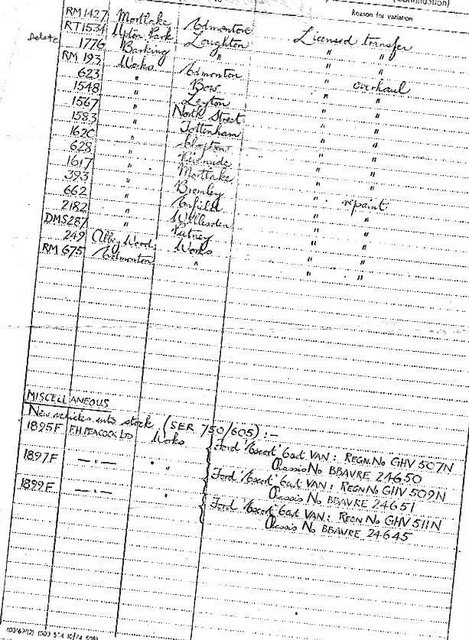 Reason for variation
RM1427 Mortlake Edmonton Licensed transfer
RT1534 Upton Park Loughton " "
Delete 1776 Barking " " "
RM 193 Works Edmonton " overhaul
623 " Bow " "
1548 " Leyton " "
1567 " North Street " "
1583 " Tottenham " "
1620 " Clapton " "
628 " Riverside " "
1617 " Mortlake " "
393 " Bromley " "
662 " Enfield " repaint
2182 " Willesden " "
DMS287 " Putney " "
249 Abbey Wood Works " "
RM 675 Edmonton " " "
MISCELLANEOUS
New vehicles into stock (SER 750/605) :-
1895F F.H. PEACOCK LTD Works { Ford 'Escort' 6cwt. VAN : REGN. No GHV 507N
Chassis No BBAVRE 24650
1897F —·—·— " { Ford 'Escort' 6cwt. VAN : REGN No GHV 509N
Chassis No BBAVRE 24651
1899F —·—·— " { Ford 'Escort' 6cwt. VAN : REGN No GHV 511N
Chassis No BBAVRE 24645